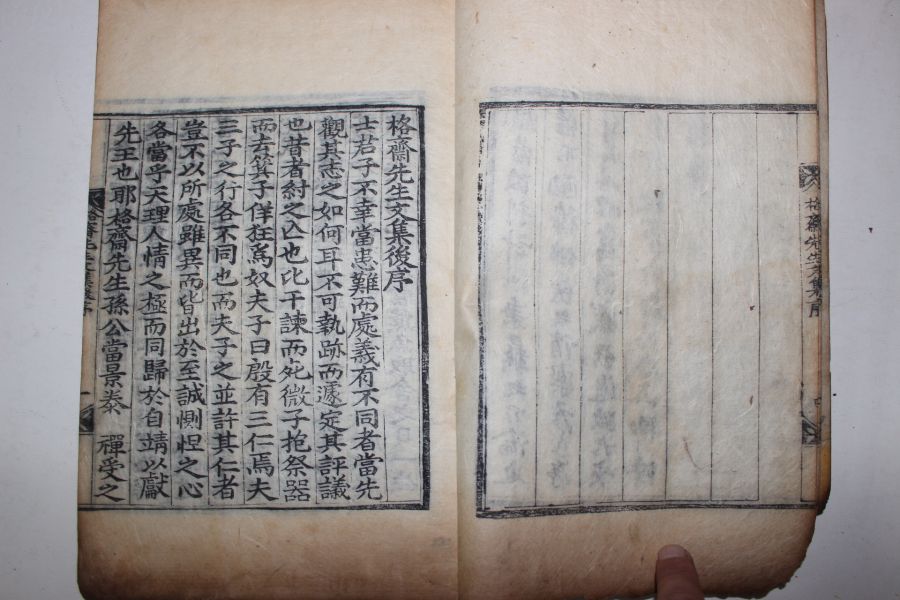 格齋先生文集序
四
格齋先生文集後序
士君子不幸當患難而處義有不同者當先
觀其志之如何耳不可執跡而遽定其評議
也昔者紂之亾也比干諫而死微子抱祭器
而去箕子佯狂爲奴夫子曰殷有三仁焉夫
三子之行各不同也而夫子之並許其仁者
豈不以所處雖異而皆出於至誠惻怛之心
各當乎天理人情之極而同歸於自靖以獻
先王也耶格齋先生孫公當景泰 禪受之
格齋先生文集後序